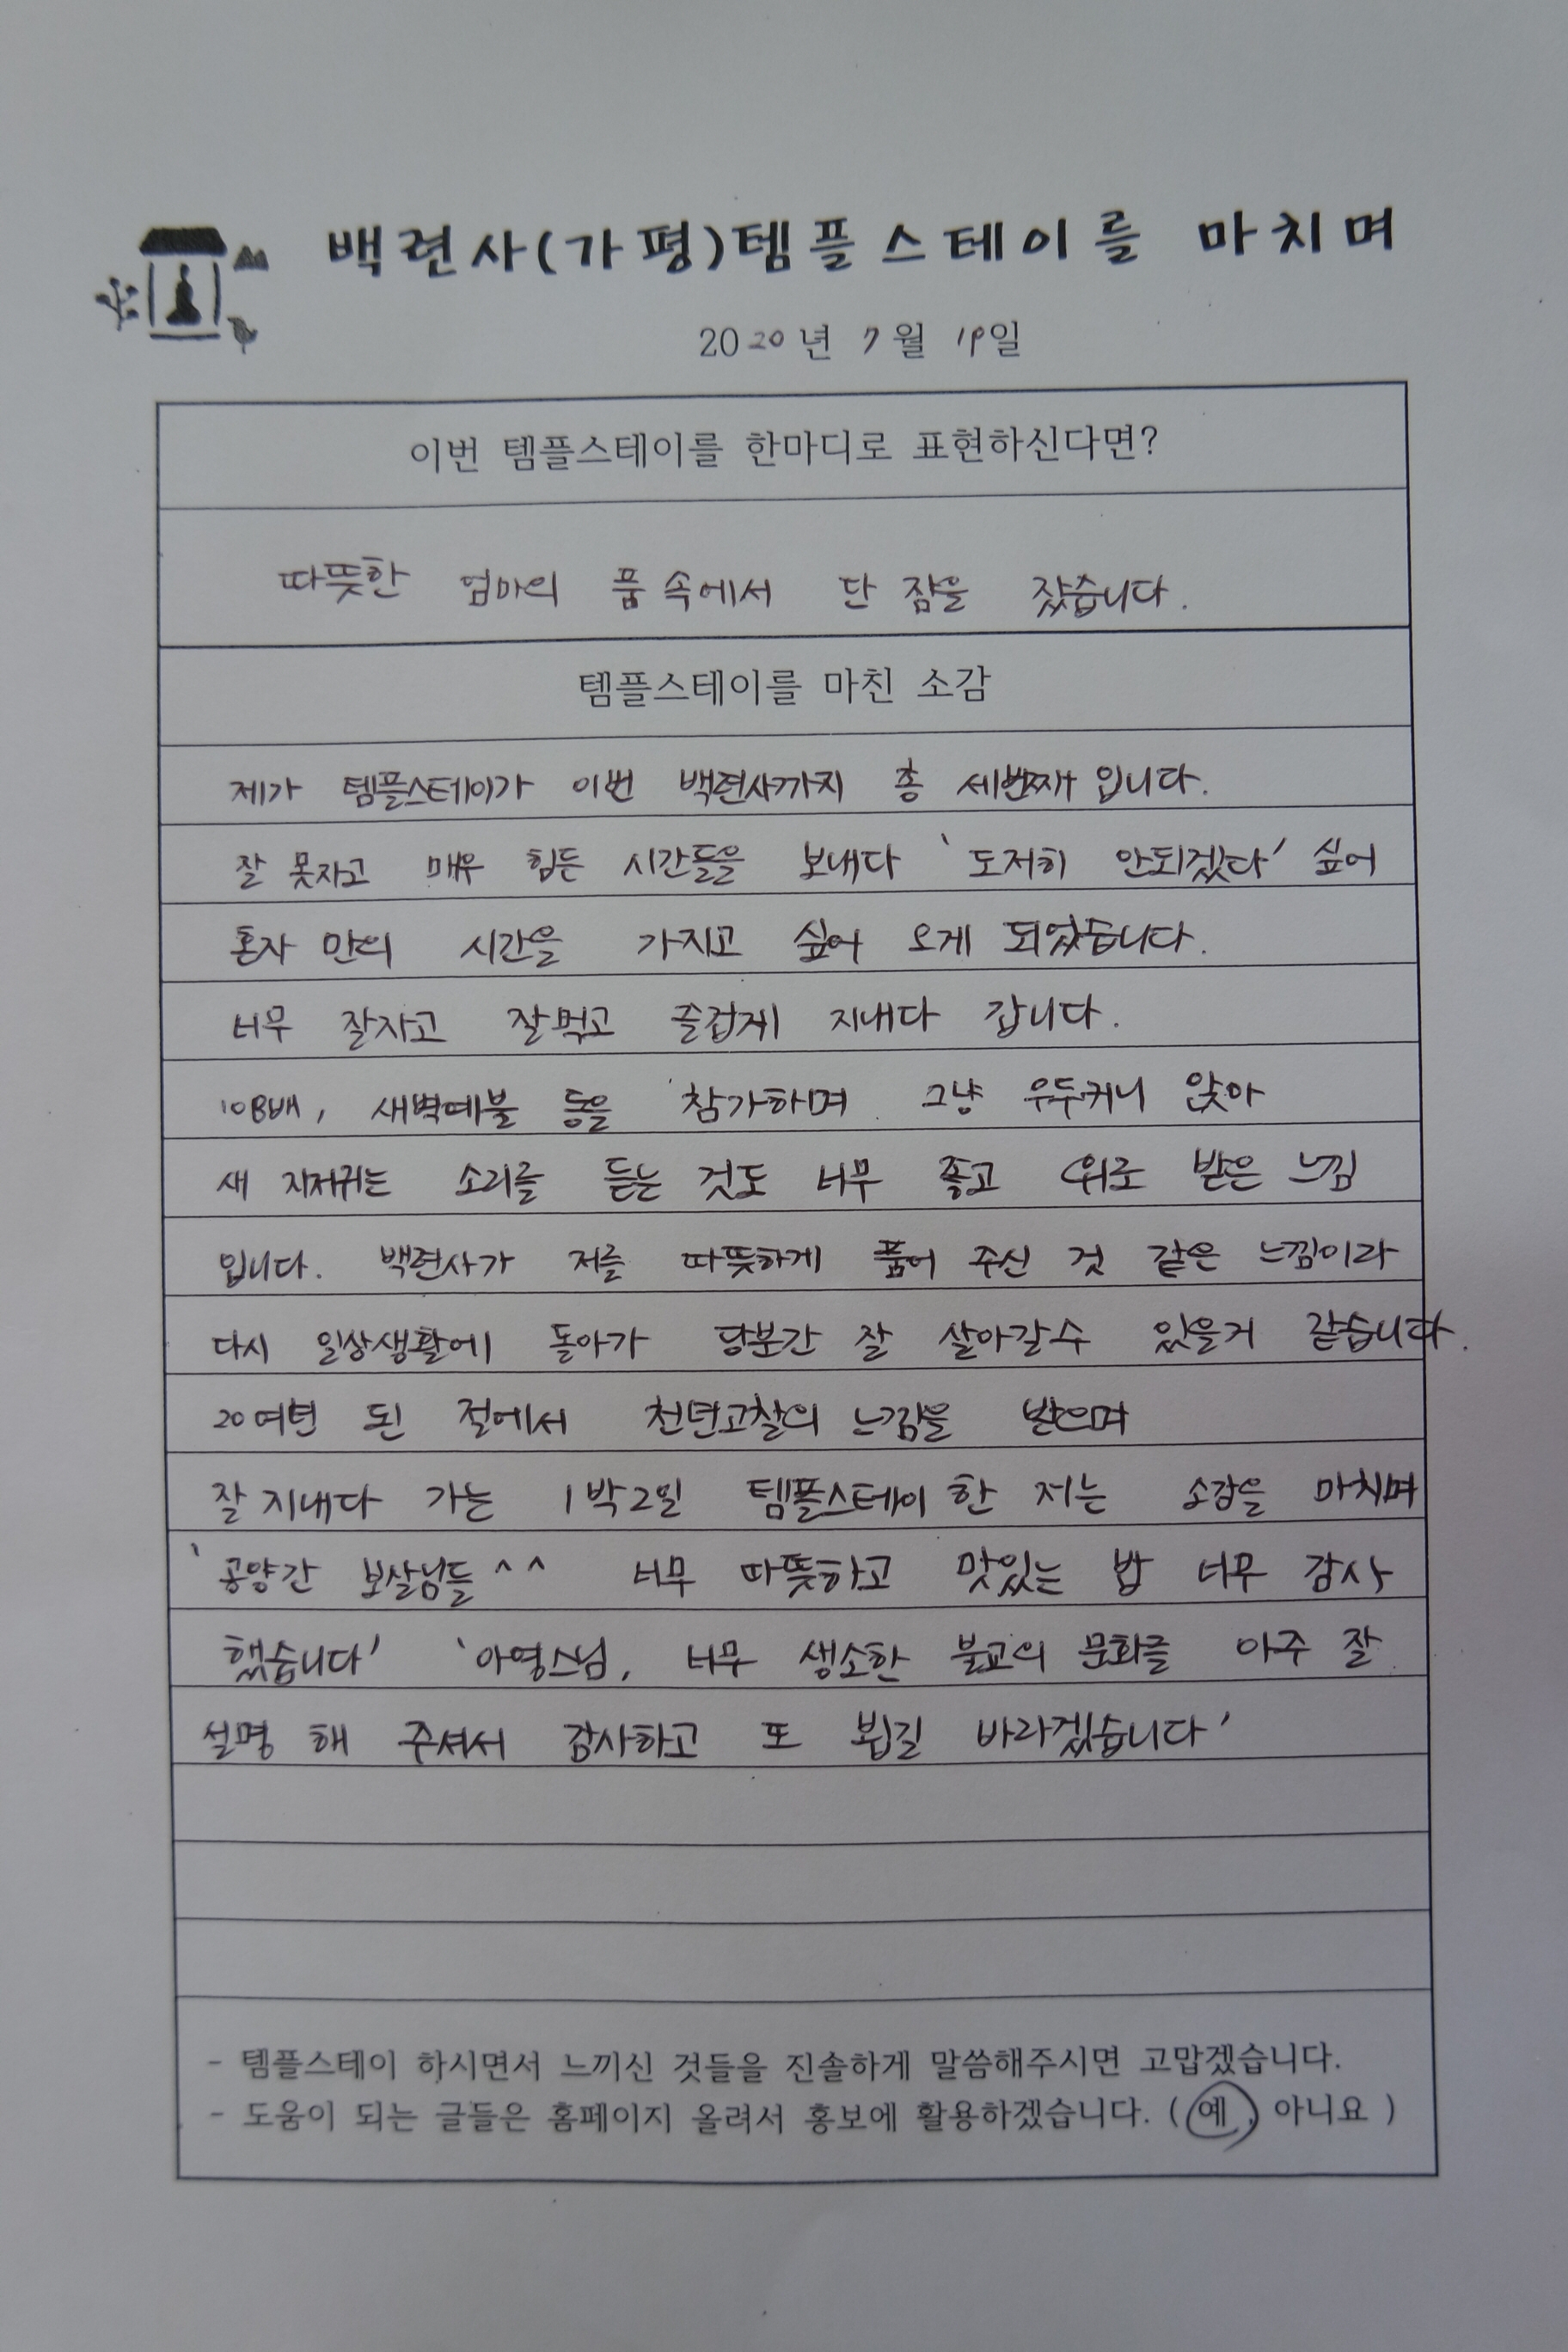 백련사(가평)템플스테이를 마치며
2020년 7월 19일
이번 템플스테이를 한마디로 표현하신다면?
따뜻한 엄마의 품 속에서 단 잠을 잤습니다.
템플스테이를 마친 소감
제가 템플스테이가 이번 백련사까지 총 세번째 입니다.
잘 못자고 매우 힘든 시간들을 보내다 '도저히 안되겠다' 싶어
혼자 만의 시간을 가지고 싶어 오게 되었습니다.
너무 잘자고 잘먹고 즐겁게 지내다 갑니다.
108배, 새벽예불 등을 참가하며 그냥 우두커니 앉아
새 지저귀는 소리를 듣는 것도 너무 좋고 위로 받은 느낌
입니다. 백련사가 저를 따뜻하게 품어 주신 것 같은 느낌이라
다시 일상생활에 돌아가 당분간 잘 살아갈수 있을거 같습니다.
20여년 된 절에서 천년고찰의 느낌을 받으며
잘 지내다 가는 1박2일 템플스테이 한 저는 소감을 마치며
'공양간 보살님들^^ 너무 따뜻하고 맛있는 밥 너무 감사
했습니다' '아영스님, 너무 생소한 불교의 문화를 아주 잘
설명 해 주셔서 감사하고 또 뵙길 바라겠습니다'
- 템플스테이 하시면서 느끼신 것들을 진솔하게 말씀해주시면 고맙겠습니다.
- 도움이 되는 글들은 홈페이지 올려서 홍보에 활용하겠습니다. ( 예, 아니요 )